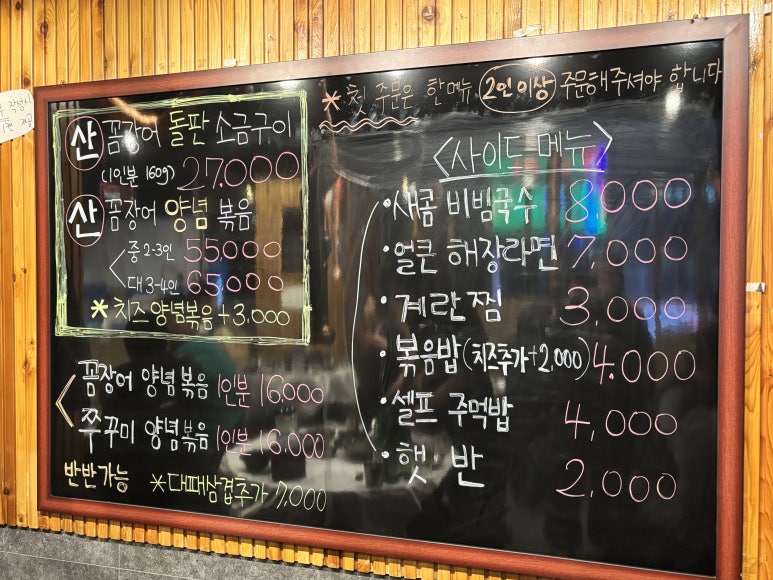 산 꼼장어 돌판 소금구이
(1인분 160g) 27,000
산 꼼장어 양념 볶음
중 2-3인 55,000
대 3-4인 65,000
* 치즈 양념볶음 + 3,000
꼼장어 양념 볶음 1인분 16,000
쭈꾸미 양념볶음 1인분 16,000
반반가능 * 대패삼겹추가 7,000
* 첫 주문은 한메뉴 2인 이상 주문해주셔야 합니다
<사이드 메뉴>
• 새콤 비빔국수 8,000
• 얼큰 해장라면 7,000
• 계란찜 3,000
• 볶음밥 (치즈추가+2,000) 4,000
• 셀프 주먹밥 4,000
• 햇반 2,000